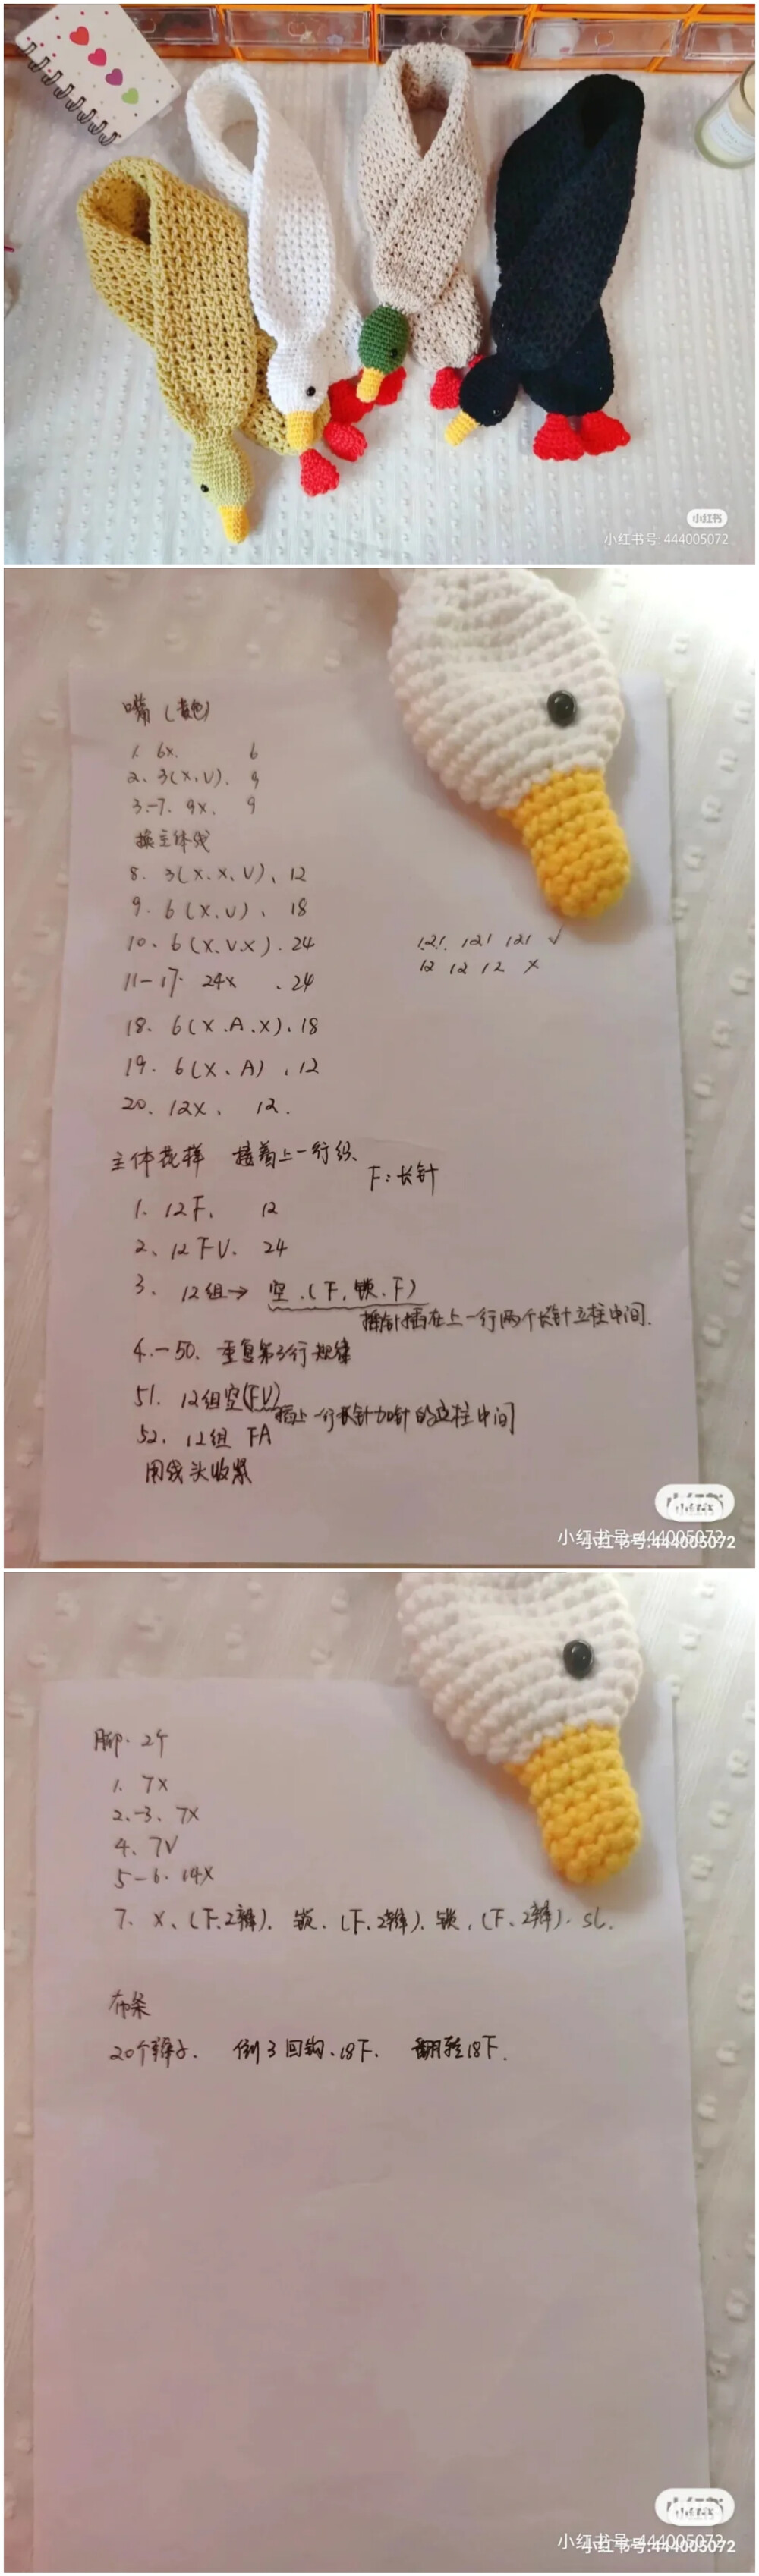 小红书
小红书号: 444005072
嘴 (黄色)
1. 6x. 6
2、3(x,v). 9
3-7. 9x. 9
换主体线
8. 3(x.x.v)、12
9. 6(x.v)、18
10、6(x.v.x). 24
121. 121 121 ✓
12 12 12 ×
11-17. 24x 、24
18. 6(x.A.x)、18
19. 6(x、A)、12
20、12x、12.
主体花样 接着上一行织、
F:长针
1. 12F. 12
2、12FV. 24
3. 12组→ 空.(F,锁.F)
插在上一行两个长针立柱中间.
4.-50. 重复第3行规律
51. 12组空(FV)
插上一行长针加针的立柱中间
52. 12组 FA
用线头收紧
小红书
小红书号:444005072
脚. 2个
1. 7x
2.-3、7x
4、7V
5-6. 14x
7. x、(F.2辫). 锁、(F、2辫). 锁,(F、2辫). sl.
布条
20个辫子. 倒3回钩、18F、 翻转18F.
小红书
小红书号:444005072